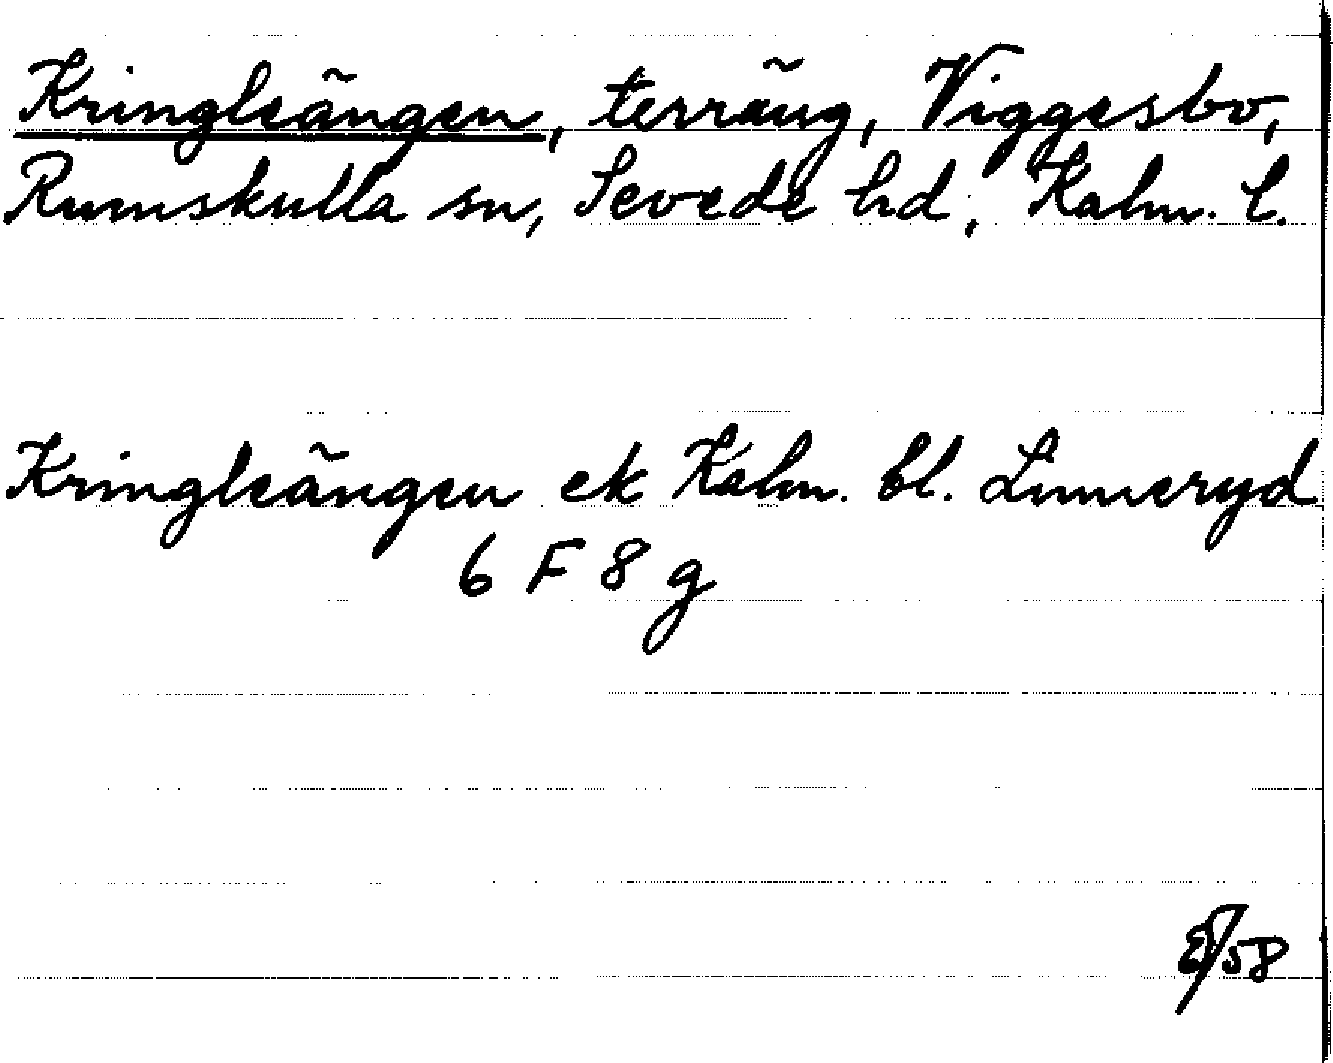 Kringleängen, terräng, Viggesbo,
Rumskulla sn, Sevede hd, Kalm. l.
Kringleängen ek Kalm. bl. Linneryd
6 F 8 g
58